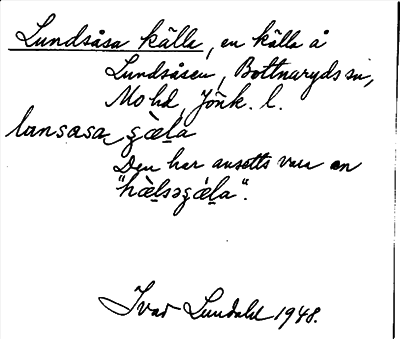 Lundsåsa källa, en källa å
Lundsåsen, Bottnaryds sn,
Mo hd, Jönk. l.
lunsasa ʂæ̀ḻa
Den har ansetts vara en
"hæ̀ḻsəʂæ̀ḻa".
Ivar Lundahl 1948.